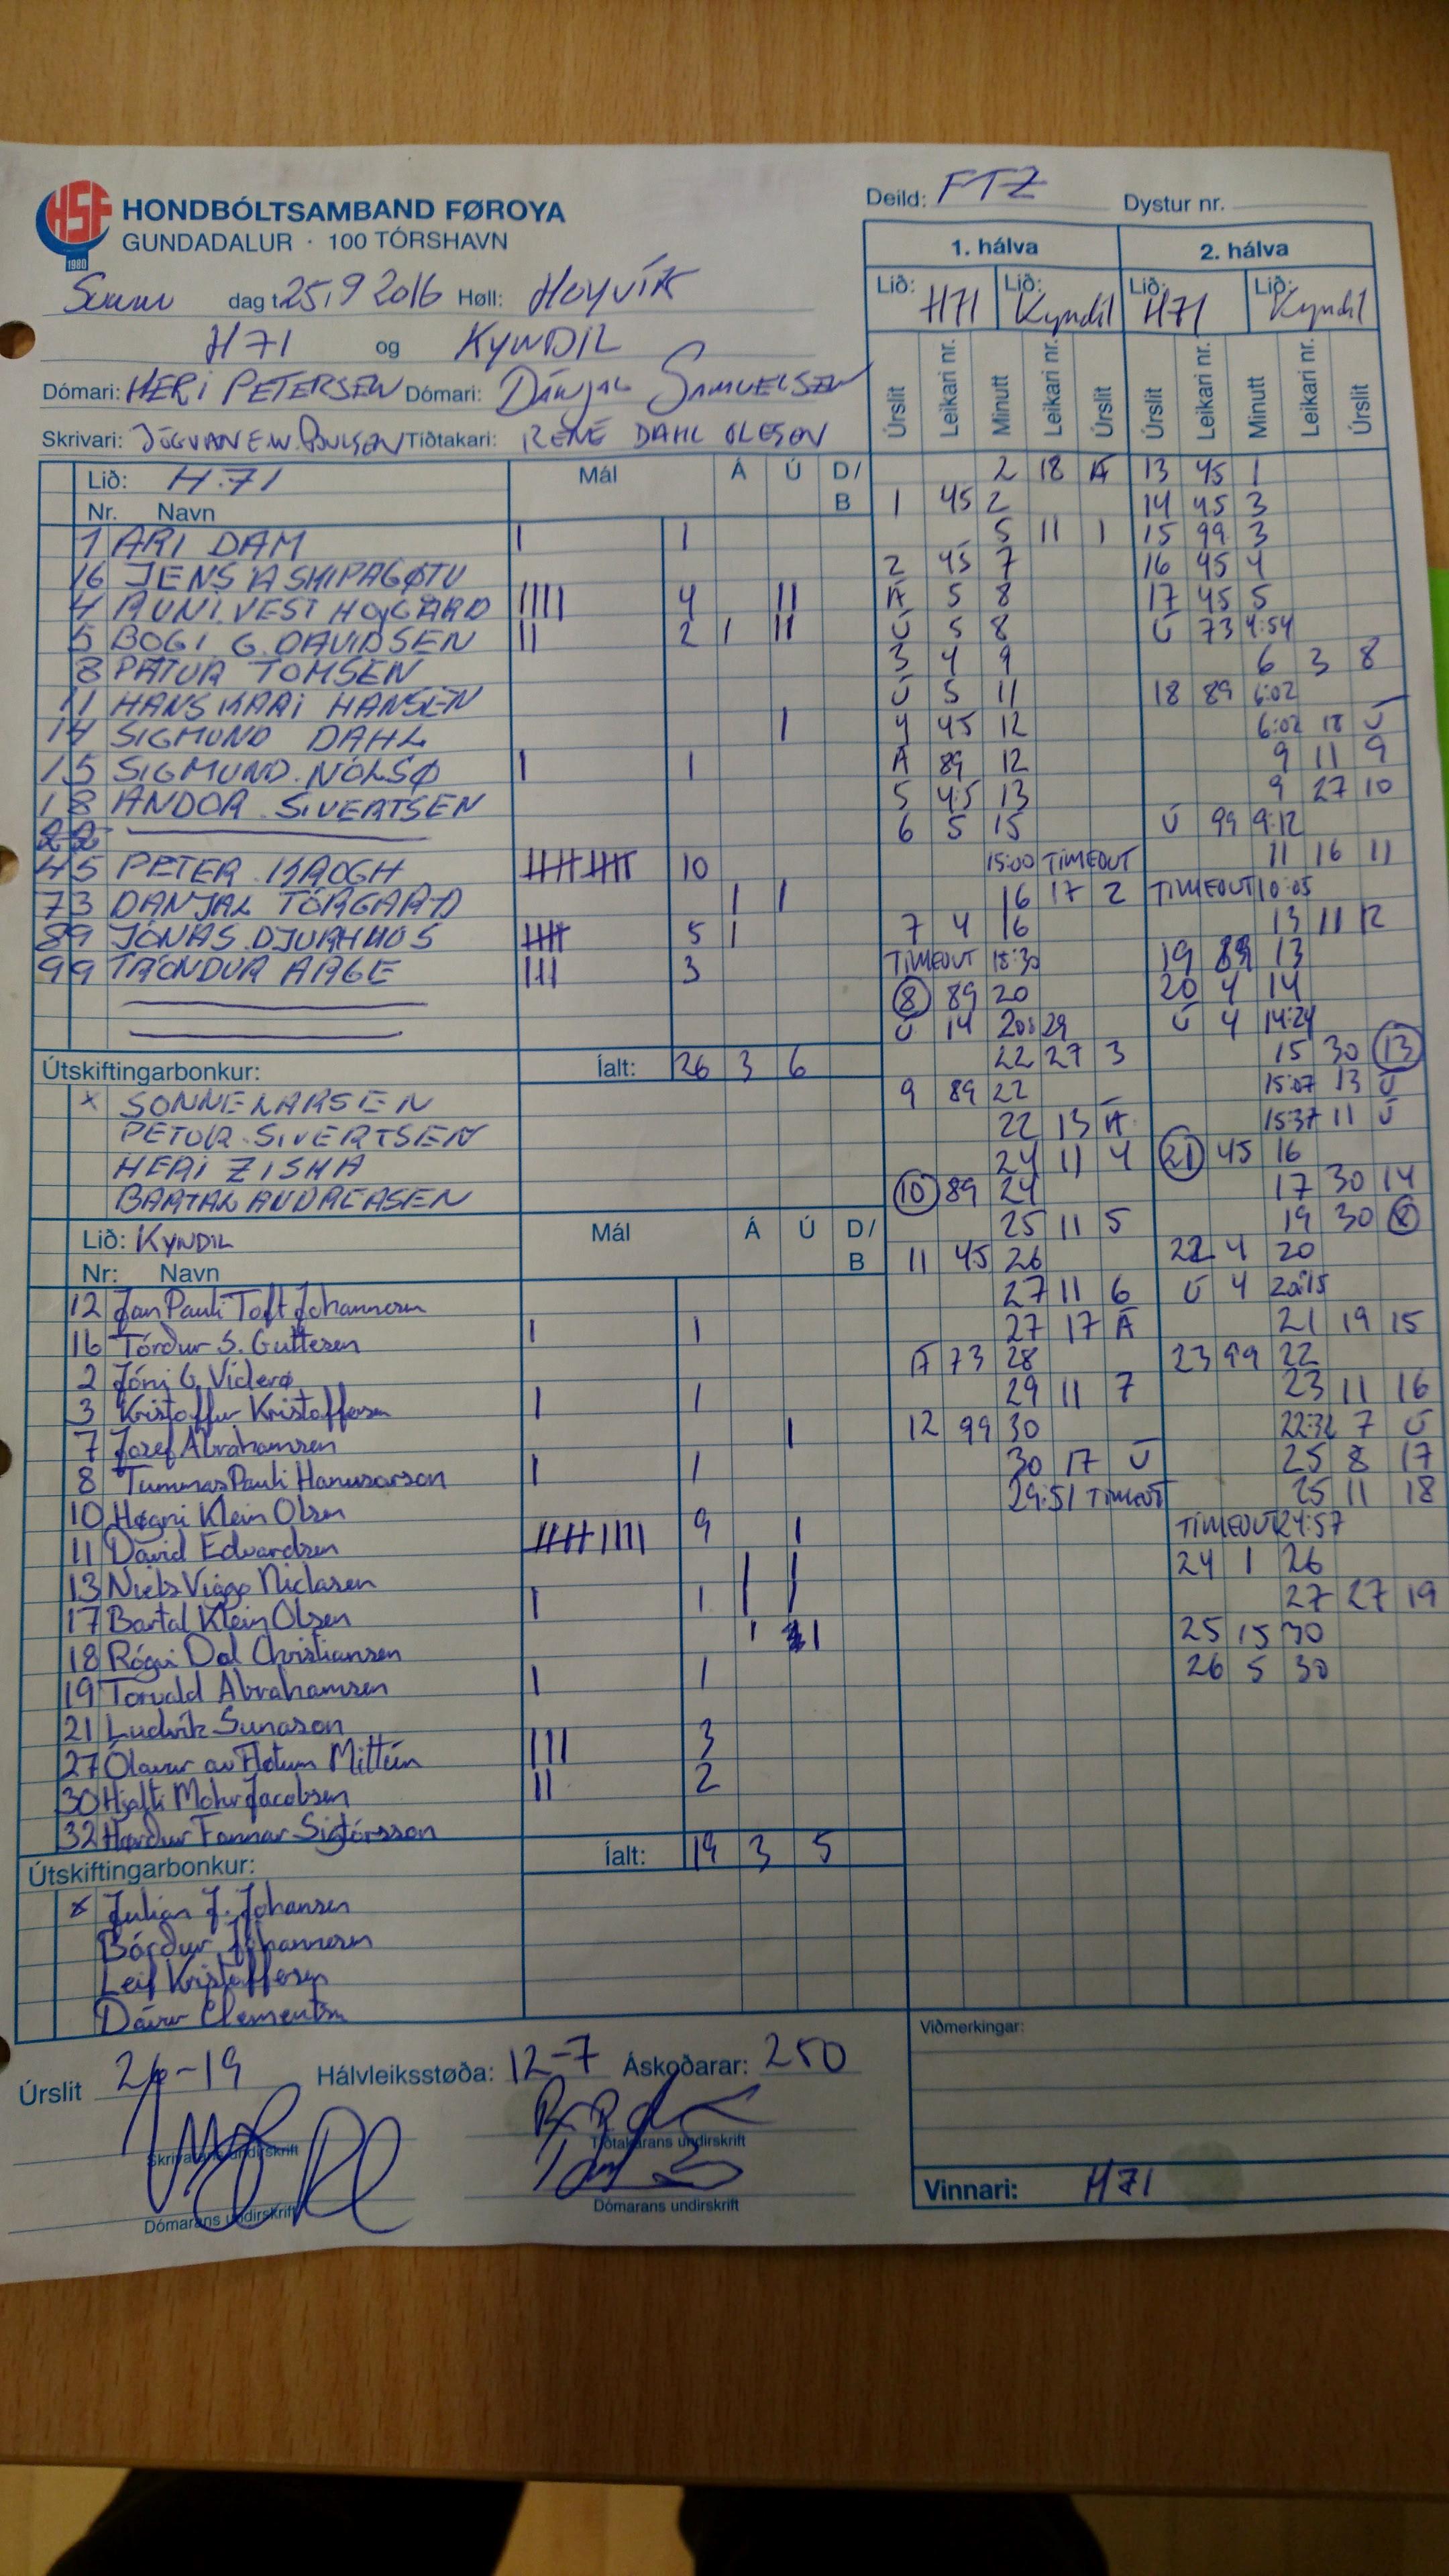 HSF
1980
HONDBÓLTSAMBAND FØROYA
GUNDADALUR · 100 TÓRSHAVN
Deild: FTZ Dystur nr.
Sunnu dag t. 25,9 2016 Høll: HOYVÍK
H71 og KYNDIL
Dómari: HERI PETERSEN Dómari: DÁNJAL SAMUELSEN
Skrivari: JÓGVAN E.W. POULSEN Tíðtakari: RENÉ DAHL OLESEN
1. hálva 2. hálva
Lið: H71 Lið: Kyndil Lið: H71 Lið: Kyndil
Úrslit Leikari nr. Minutt Leikari nr. Úrslit Úrslit Leikari nr. Minutt Leikari nr. Úrslit
Lið: H.71 Mál Á Ú D/B
Nr. Navn
1 ARI DAM 1
16 JENS Á SKIPAGØTU
4 RUNI VEST HOJGARD 4
5 BOGI G. DAVIDSEN 2
8 PÁTUR TOMSEN
11 HANS KÁRI HANSEN
14 SIGMUND DAHL
15 SIGMUND NÓLSØ 1
18 ANDOR SIVERTSEN
22
45 PETER KROGH 10
73 DANJAL TORGARD
89 JÓNAS DJURHUUS 5
99 TRÓNDUR ARGE 3
Útskiftingarbonkur: Íalt: 26 3 6
x SONNE LARSEN
PETUR SIVERTSEN
HERI ZISKA
BARTAL ANDREASEN
Lið: KYNDIL Mál Á Ú D/B
Nr: Navn
12 Jan Pauli Toft Johannesen
16 Tórður S. Guttesen 1
2 Jóni G. Viderø
3 Kristoffur Kristoffersen 1
7 Josef Abrahamsen
8 Tummas Pauli Hanusarson 1
10 Høgni Klein Olsen
11 Dávid Edvardsen 9
13 Niels Viggo Niclasen
17 Bartal Klein Olsen 1
18 Rógvi Dal Christiansen
19 Torvald Abrahamsen 1
21 Ludvík Sunason
27 Ólavur av Fløtum Mittún 3
30 Hjalti Mohr Jacobsen 2
32 Hørður Fannar Sigtórsson
Útskiftingarbonkur: Íalt: 19 3 5
x Julian J. Johansen
Bárður Johannesen
Leif Kristoffersen
Dávur Clementsen
2 18 Á
1 45 2
5 11 1
2 45 7
Á 5 8
Ú 5 8
3 4 9
Ú 5 11
4 45 12
Á 89 12
5 45 13
6 5 15
15:00 TIMEOUT
16 17 2
7 4 16
TIMEOUT 18:30
8 89 20
Ú 14 20:29
22 27 3
9 89 22
22 13 Á
24 11 4
10 89 24
25 11 5
11 45 26
27 11 6
27 17 Á
Á 73 28
29 11 7
12 99 30
30 17 Ú
29:51 TIMEOUT
13 45 1
14 45 3
15 99 3
16 45 4
17 45 5
Ú 73 4:54
6 3 8
18 89 6:02
6:02 18 Ú
9 11 9
9 27 10
Ú 99 9:12
11 16 11
TIMEOUT 10:05
13 11 12
19 89 13
20 4 14
Ú 4 14:24
15 30 13
15:07 13 Ú
15:37 11 Ú
21 45 16
17 30 14
19 30
22 4 20
Ú 4 20:15
21 19 15
23 99 22
23 11 16
22:32 7 Ú
25 8 17
25 11 18
TIMEOUT 24:57
24 1 26
27 27 19
25 15 30
26 5 30
Úrslit 26-19 Hálvleiksstøða: 12-7 Áskoðarar: 250
Skrivarans undirskrift Tíðtakarans undirskrift
Dómarans undirskrift Dómarans undirskrift
Viðmerkingar:
Vinnari: H71